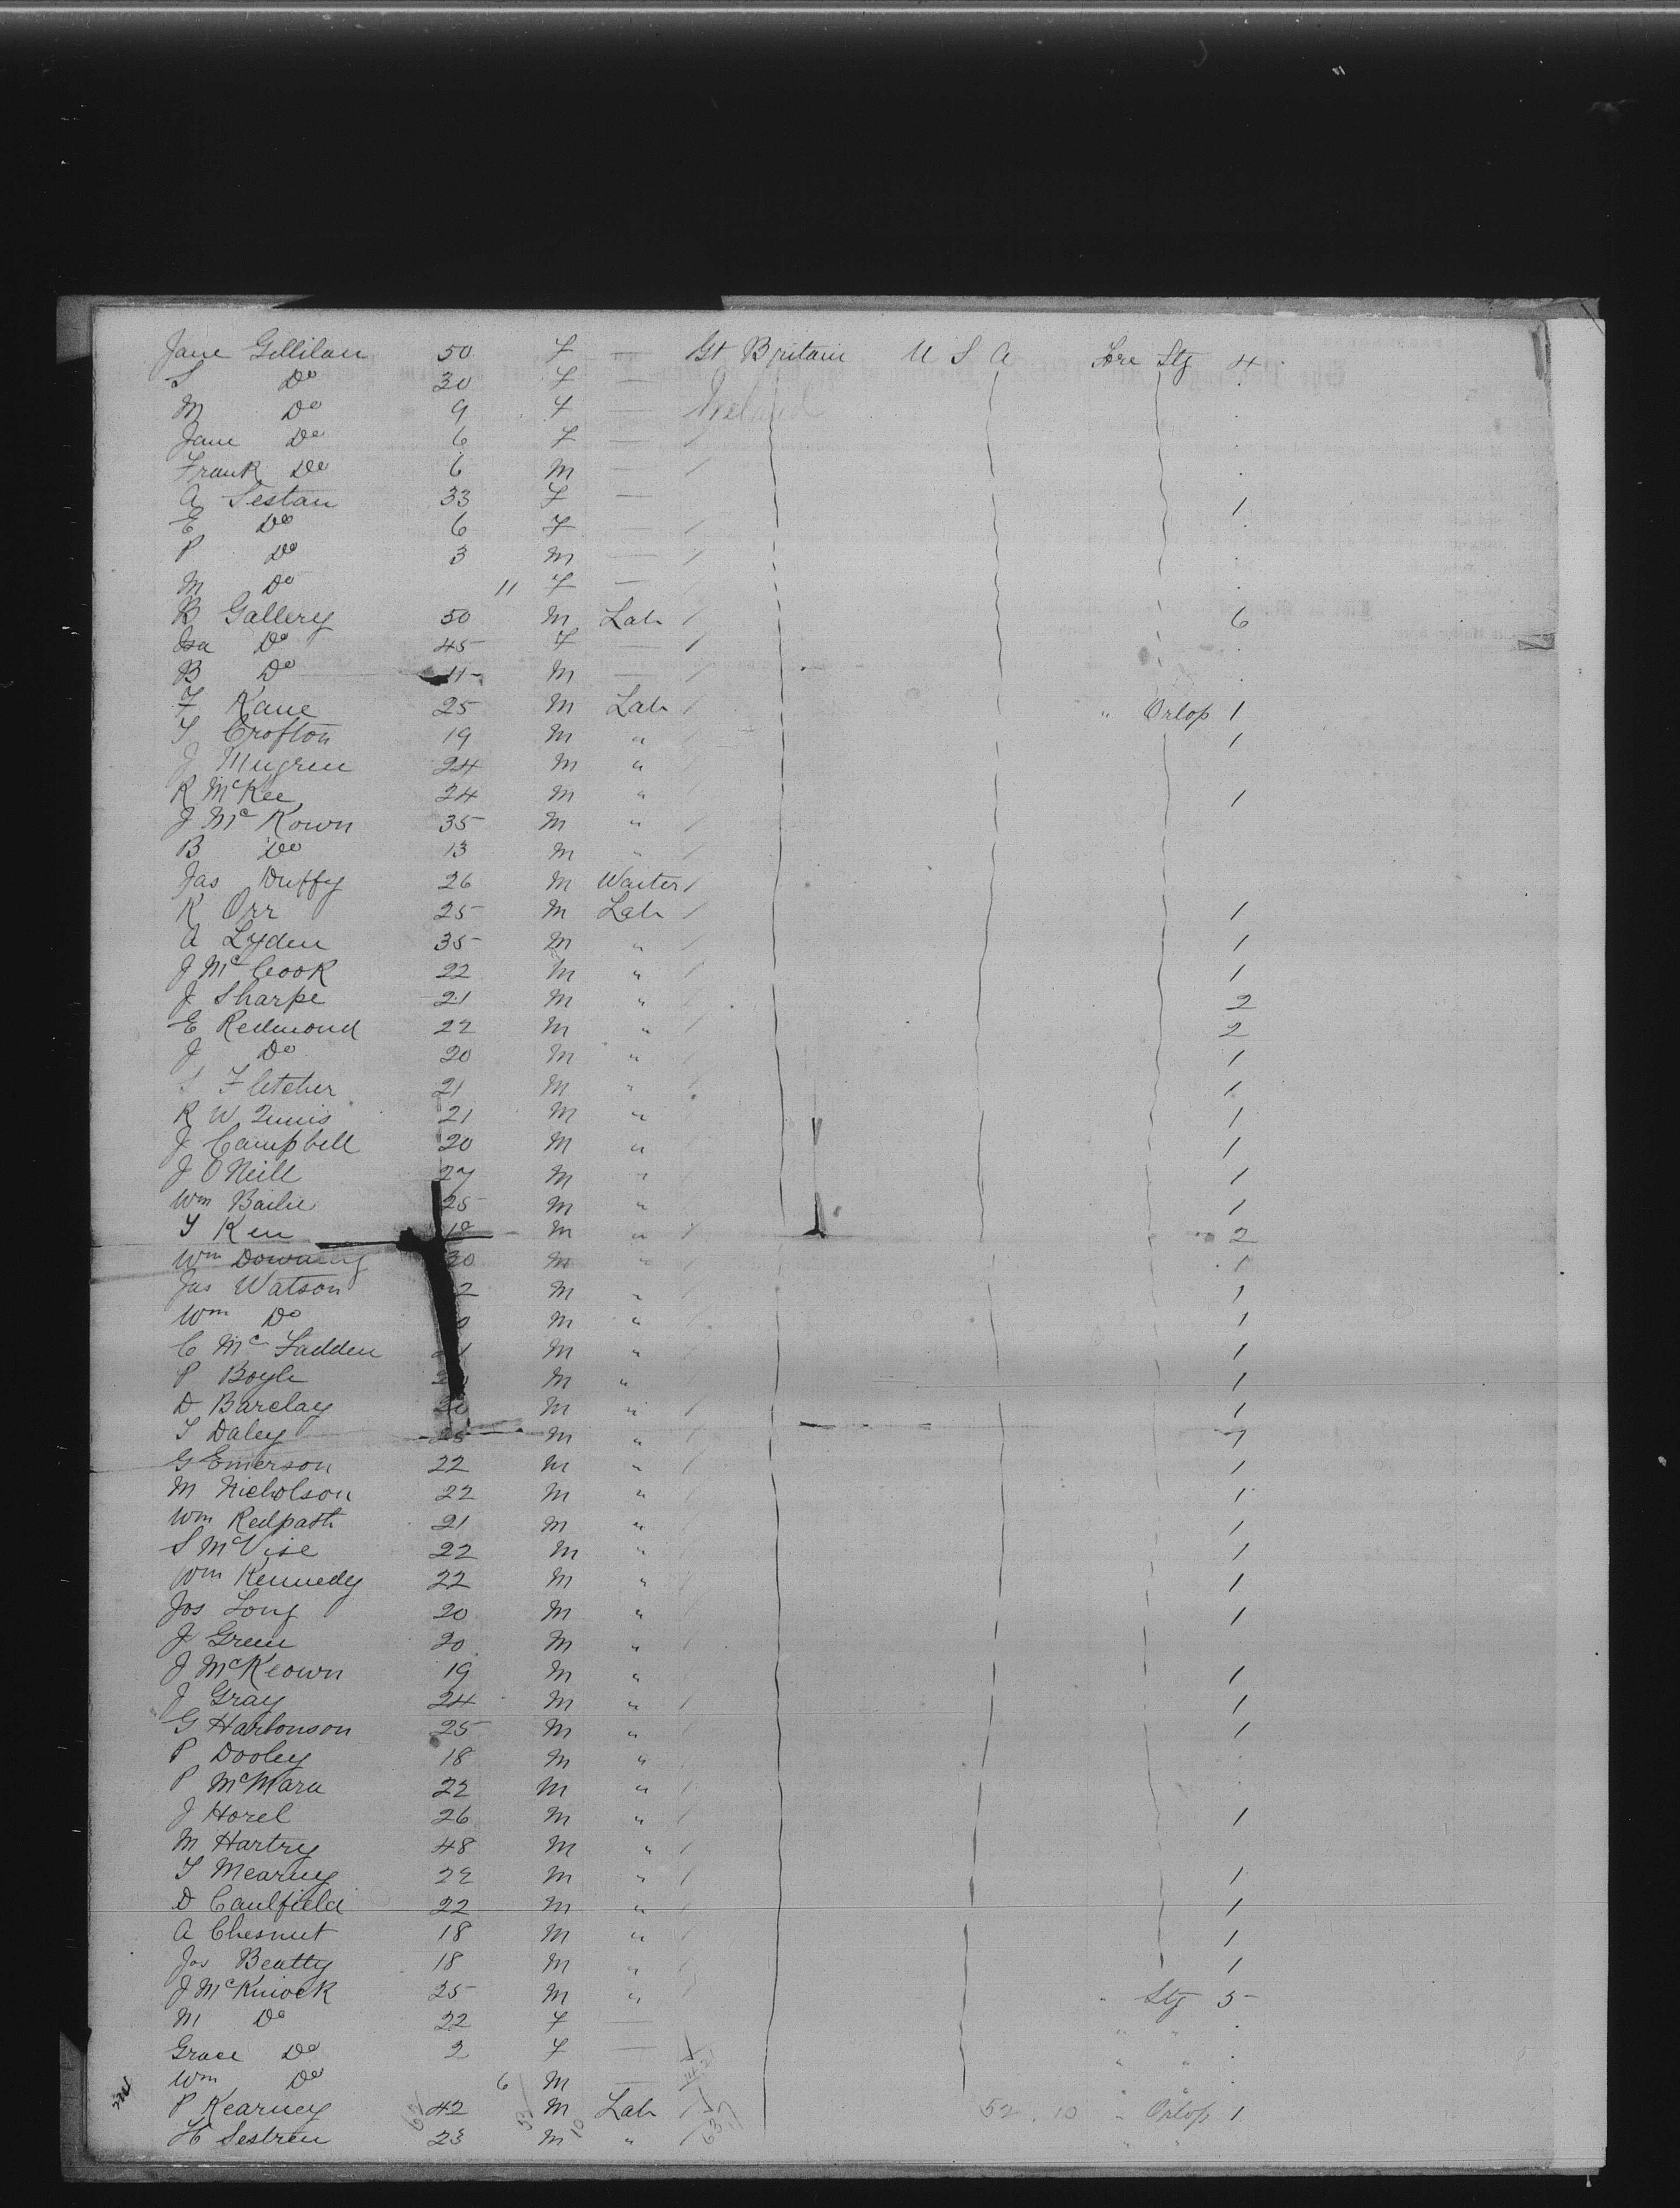 Jane Gillilan 50 F — Gt Britain U S A Fore Stg 4
S Do 30 F —
M Do 9 F — Ireland
Jane Do 6 F —
Frank Do 6 M —
A Sestan 33 F — 1
E Do 6 F —
P Do 3 M —
M Do 11 F —
B Gallery 50 M Lab 6
Isa Do 45 F —
B Do 11 M —
F Kane 25 M Lab " Orlop 1
T Crofton 19 M " 1
J Mugren 24 M "
R McKee 24 M " 1
J McKown 35 M "
B Do 13 M "
Jas Duffy 26 M Waiter
R Orr 25 M Lab 1
A Lyden 35 M " 1
J McCook 22 M " 1
J Sharpe 21 M " 2
E Redmond 22 M " 2
J Do 20 M " 1
S Fletcher 21 M " 1
R W 21 M " 1
J Campbell 20 M " 1
J O'Neill 27 M " 1
Wm Bailie 25 M " 1
T Ken 18 M " 2
Wm Downey 30 M " 1
Jas Watson 2 M " 1
Wm Do M " 1
C McFadden M " 1
P Boyle M " 1
D Barclay 20 M " 1
T Daley 25 M " 1
G Emerson 22 M " 1
M Nicholson 22 M " 1
Wm Redpath 21 M " 1
S McVise 22 M " 1
Wm Kennedy 22 M " 1
Jos Long 20 M " 1
J Green 20 M "
J McKeown 19 M " 1
J Gray 24 M " 1
G Harbonson 25 M " 1
P Dooley 18 M "
P McMara 22 M "
J Horel 26 M " 1
M Hartry 48 M "
T Mearney 22 M " 1
D Caulfield 22 M " 1
A Chesnut 18 M " 1
Jos Beatty 18 M " 1
J McKniock 25 M " " Stg 5
M Do 22 F — " "
Grace Do 2 F — " "
Wm Do 6 M — " "
P Kearney 42 M Lab 52 . 10 " Orlop 1
H Sestren 23 M " " "